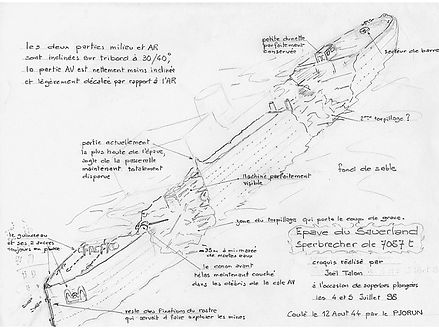 les deux parties milieu et AR
sont inclinées sur tribord à 30/40°,
la partie AV est nettement moins inclinée
et légèrement décalée par rapport à l'AR
petite dunette
parfaitement
conservée
secteur de barre
2ème torpillage ?
partie actuellement
la plus haute de l'épave,
angle de la passerelle
maintenant totalement
disparue
Machine parfaitement
visible
fond de sable
zone du torpillage qui porta le coup de grace.
le guindeau
et ses 2 ancres
toujours en place
-35m à mi-marée
de mortes eaux
le canon avant
hélas maintenant couché
dans les débris de la cale AV
reste des fixations du rostre
qui servait à faire exploser les mines
Epave du Sauerland
Sperbrecher de 7087 t
croquis réalisé par
Joël Talon
à l'occasion de superbes plongées
les 4 et 5 Juillet 98
Coulé le 12 Aout 44 par le PJORUN